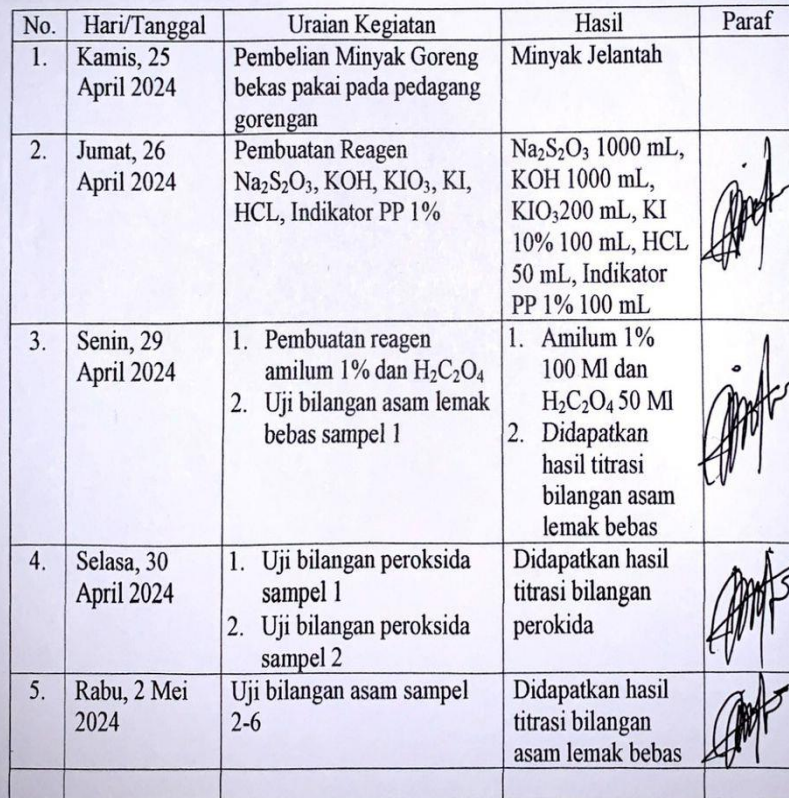 No. Hari/Tanggal Uraian Kegiatan Hasil Paraf
1. Kamis, 25 April 2024
Pembelian Minyak Goreng
bekas pakai pada pedagang
gorengan
Minyak Jelantah
2. Jumat, 26
April 2024
Pembuatan Reagen
Na₂S₂O₃, KOH, KIO₃, KI,
HCL, Indikator PP 1%
Na₂S₂O₃ 1000 mL,
KOH 1000 mL,
KIO₃200 mL, KI
10% 100 mL, HCL
50 mL, Indikator
PP 1% 100 mL
3. Senin, 29
April 2024
1. Pembuatan reagen
amilum 1% dan H₂C₂O₄
2. Uji bilangan asam lemak
bebas sampel 1
1. Amilum 1%
100 Ml dan
H₂C₂O₄ 50 Ml
2. Didapatkan
hasil titrasi
bilangan asam
lemak bebas
4. Selasa, 30
April 2024
1. Uji bilangan peroksida
sampel 1
2. Uji bilangan peroksida
sampel 2
Didapatkan hasil
titrasi bilangan
perokida
5. Rabu, 2 Mei
2024
Uji bilangan asam sampel
2-6
Didapatkan hasil
titrasi bilangan
asam lemak bebas